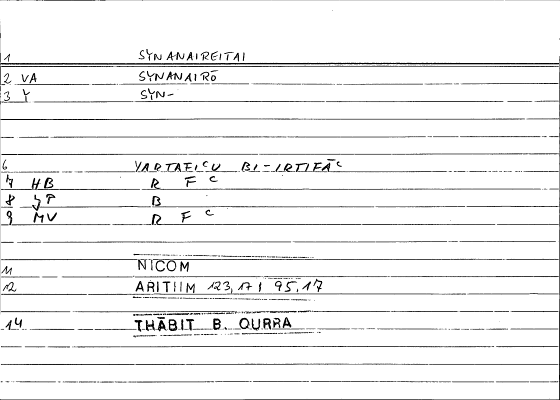 1 SYNANAIREITAI
2 VA SYNANAIRŌ
3 Y SYN-
6 YARTAFIᶜU BI-IRTIFĀᶜ
7 HB R F ᶜ
8 JP B
9 MV R F ᶜ
11 NICOM
12 ARITIIM 123,17 ; 95,17
14 THĀBIT B. QURRA